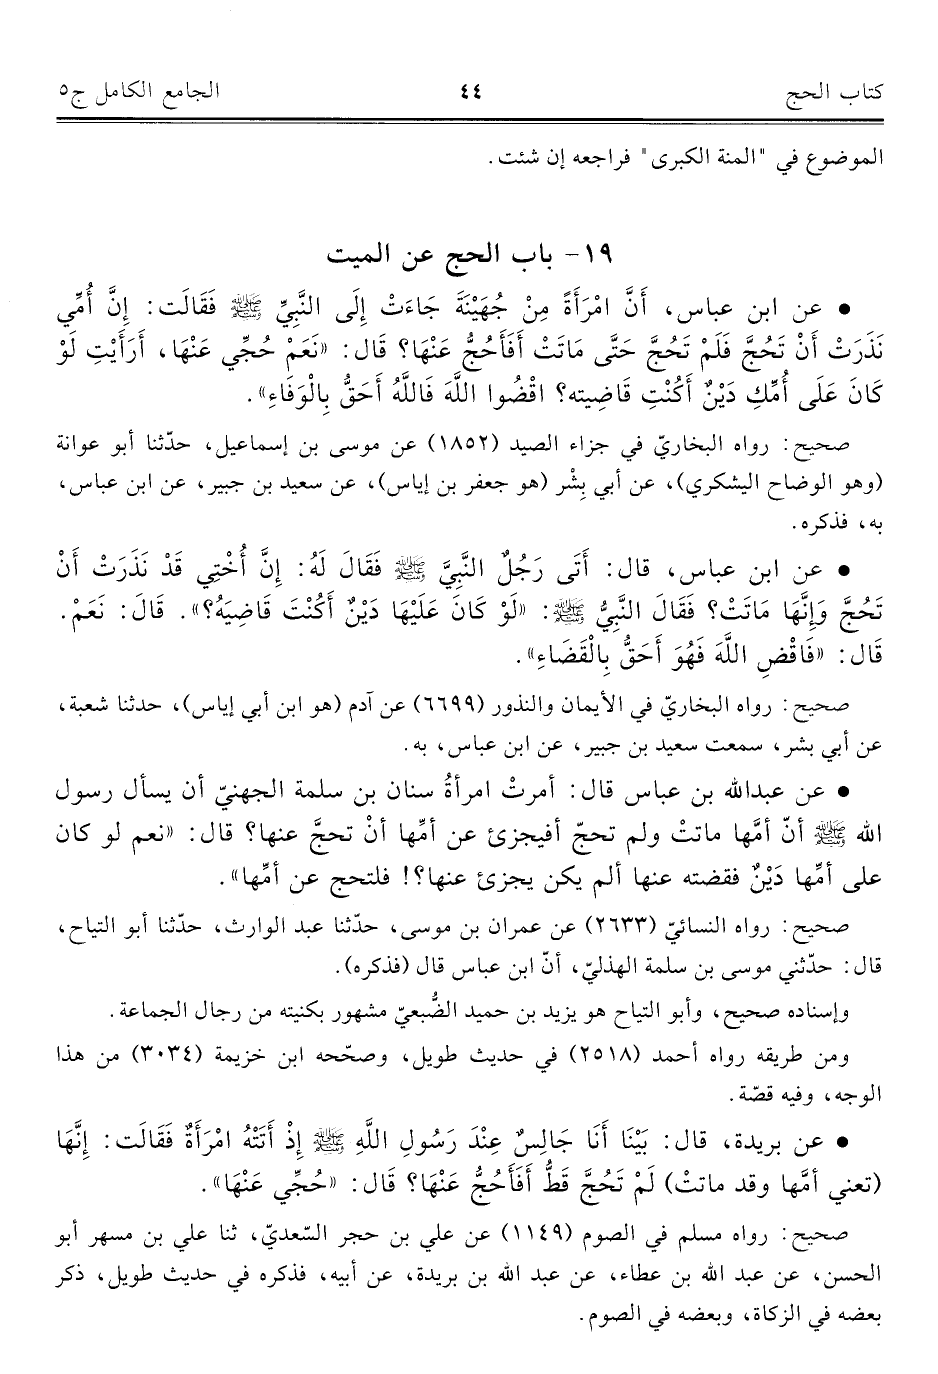 كتاب الحج ٤٤ الجامع الكامل ج٥
الموضوع في "المنة الكبرى" فراجعه إن شئت.
١٩- باب الحج عن الميت
• عن ابن عباس، أَنَّ امْرَأَةً مِنْ جُهَيْنَةَ جَاءَتْ إِلَى النَّبِيِّ ﷺ فَقَالَت: إِنَّ أُمِّي
نَذَرَتْ أَنْ تَحُجَّ فَلَمْ تَحُجَّ حَتَّى مَاتَتْ أَفَأَحُجُّ عَنْهَا؟ قَال: «نَعَمْ حُجِّي عَنْهَا، أَرَأَيْتِ لَوْ
كَانَ عَلَى أُمِّكِ دَيْنٌ أَكُنْتِ قَاضِيته؟ اقْضُوا اللَّهَ فَاللَّهُ أَحَقُّ بِالْوَفَاءِ».
صحيح: رواه البخاريّ في جزاء الصيد (١٨٥٢) عن موسى بن إسماعيل، حدّثنا أبو عوانة
(وهو الوضاح اليشكري)، عن أبي بِشْر (هو جعفر بن إياس)، عن سعيد بن جبير، عن ابن عباس،
به، فذكره.
• عن ابن عباس، قال: أَتَى رَجُلٌ النَّبِيَّ ﷺ فَقَالَ لَهُ: إِنَّ أُخْتِي قَدْ نَذَرَتْ أَنْ
تَحُجَّ وَإِنَّهَا مَاتَتْ؟ فَقَالَ النَّبِيُّ ﷺ: «لَوْ كَانَ عَلَيْهَا دَيْنٌ أَكُنْتَ قَاضِيَهُ؟». قَالَ: نَعَمْ.
قَال: «فَاقْضِ اللَّهَ فَهُوَ أَحَقُّ بِالْقَضَاءِ».
صحيح: رواه البخاريّ في الأيمان والنذور (٦٦٩٩) عن آدم (هو ابن أبي إياس)، حدثنا شعبة،
عن أبي بشر، سمعت سعيد بن جبير، عن ابن عباس، به.
• عن عبدالله بن عباس قال: أمرتْ امرأةُ سنان بن سلمة الجهنيّ أن يسأل رسول
الله ﷺ أنّ أمَّها ماتتْ ولم تحجّ أفيجزئ عن أمِّها أنْ تحجَّ عنها؟ قال: «نعم لو كان
على أمِّها دَيْنٌ فقضته عنها ألم يكن يجزئ عنها؟! فلتحج عن أمِّها».
صحيح: رواه النسائيّ (٢٦٣٣) عن عمران بن موسى، حدّثنا عبد الوارث، حدّثنا أبو التياح،
قال: حدّثني موسى بن سلمة الهذليّ، أنّ ابن عباس قال (فذكره).
وإسناده صحيح، وأبو التياح هو يزيد بن حميد الضُّبعيّ مشهور بكنيته من رجال الجماعة.
ومن طريقه رواه أحمد (٢٥١٨) في حديث طويل، وصحّحه ابن خزيمة (٣٠٣٤) من هذا
الوجه، وفيه قصّة.
• عن بريدة، قال: بَيْنَا أَنَا جَالِسٌ عِنْدَ رَسُولِ اللَّهِ ﷺ إِذْ أَتَتْهُ امْرَأَةٌ فَقَالَت: إِنَّهَا
(تعني أمَّها وقد ماتتْ) لَمْ تَحُجَّ قَطُّ أَفَأَحُجُّ عَنْهَا؟ قَال: «حُجِّي عَنْهَا».
صحيح: رواه مسلم في الصوم (١١٤٩) عن علي بن حجر السّعديّ، ثنا علي بن مسهر أبو
الحسن، عن عبد الله بن عطاء، عن عبد الله بن بريدة، عن أبيه، فذكره في حديث طويل، ذكر
بعضه في الزكاة، وبعضه في الصوم.